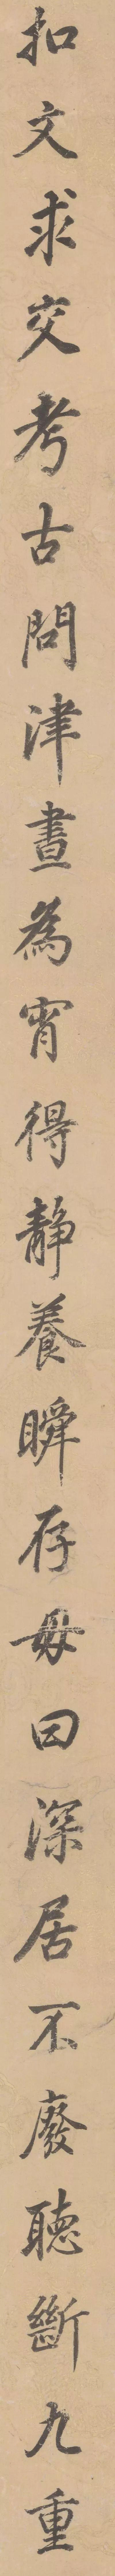 扣文求交考古問津晝為宵得靜養瞬存毋曰深居不廢聽斷九重